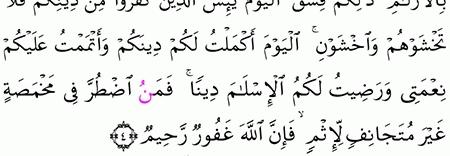 بِٱلْأَزْلَـٰمِ ۚ ذَٰلِكُمْ فِسْقٌ ۗ ٱلْيَوْمَ يَئِسَ ٱلَّذِينَ كَفَرُوا۟ مِن دِينِكُمْ فَلَا
تَخْشَوْهُمْ وَٱخْشَوْنِ ۚ ٱلْيَوْمَ أَكْمَلْتُ لَكُمْ دِينَكُمْ وَأَتْمَمْتُ عَلَيْكُمْ
نِعْمَتِى وَرَضِيتُ لَكُمُ ٱلْإِسْلَـٰمَ دِينًا ۚ فَمَنُ ٱضْطُرَّ فِى مَخْمَصَةٍ
غَيْرَ مُتَجَانِفٍ لِّإِثْمٍ ۙ فَإِنَّ ٱللَّهَ غَفُورٌ رَّحِيمٌ ﴿٤﴾